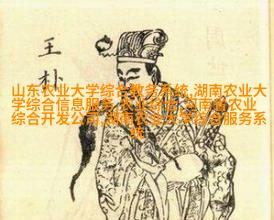 王朴
山东农业大学综合教务系统,湖南农业大
学综合信息服务
农业
综合开发公司,湖南农业大学综合服务系
统